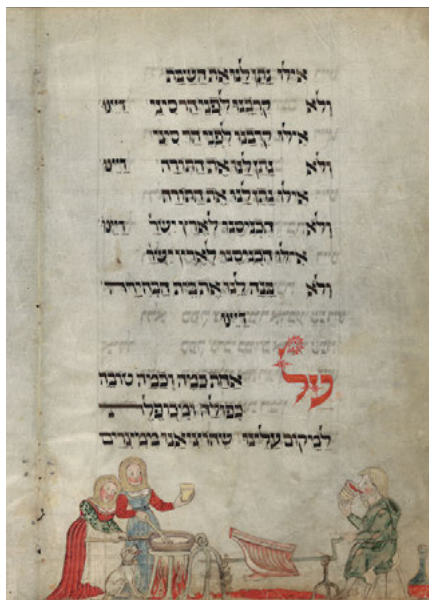 אילו נתן לנו את השבת
ולא קרבנו לפני הר סיני דיינו
אילו קרבנו לפני הר סיני
ולא נתן לנו את התורה דיינו
אילו נתן לנו את התורה
ולא הכניסנו לארץ ישר' דיינו
אילו הכניסנו לארץ ישר'
ולא בנה לנו את בית הבחירה
דיינו
על אחת כמה וכמה טובה
כפולה ומכופלת
למקום עלינו שהוציאנו ממצרים